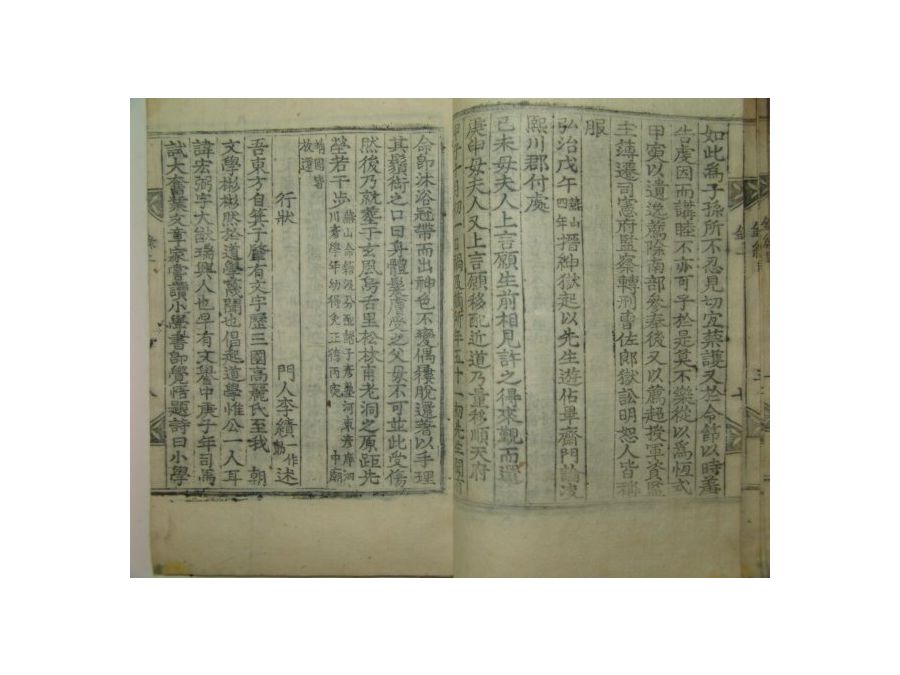 如此爲子孫所不忍見切宜禁護又於令節以時薦
告慶因而講睦不亦可乎於是莫不樂從以爲恆式
甲寅以遺逸薦除南部參奉後又以薦超授軍資監
主薄遷司憲府監察轉刑曹佐郎獄訟明恕人皆稱
服
弘治戊午燕山四年搢紳獄起以先生遊佔畢齋門論決
熙川郡付處
己未母夫人上言願生前相見許之得來覲而還
庚申母夫人又上言願移配近道乃量移順天府
甲子十月初一日禍
命卽沐浴冠帶而出神色不變偶褸脫還著以手理
其鬚銜之口曰身體髮膚受之父母不可並此受傷
然後乃就塟于玄風烏舌里松林甫老洞之原距先
塋若干步
靖國皆放還
行狀
門人李績一作勣述
吾東方自箕子肇有文字歷三國高麗氏至我 朝
文學彬彬然於道學蔑聞也倡起道學惟公一人耳
諱宏弼字大猷瑞興人也早有文譽中庚子年司馬
試大奮業文章家嘗讀小學書卽覺悟題詩曰小學